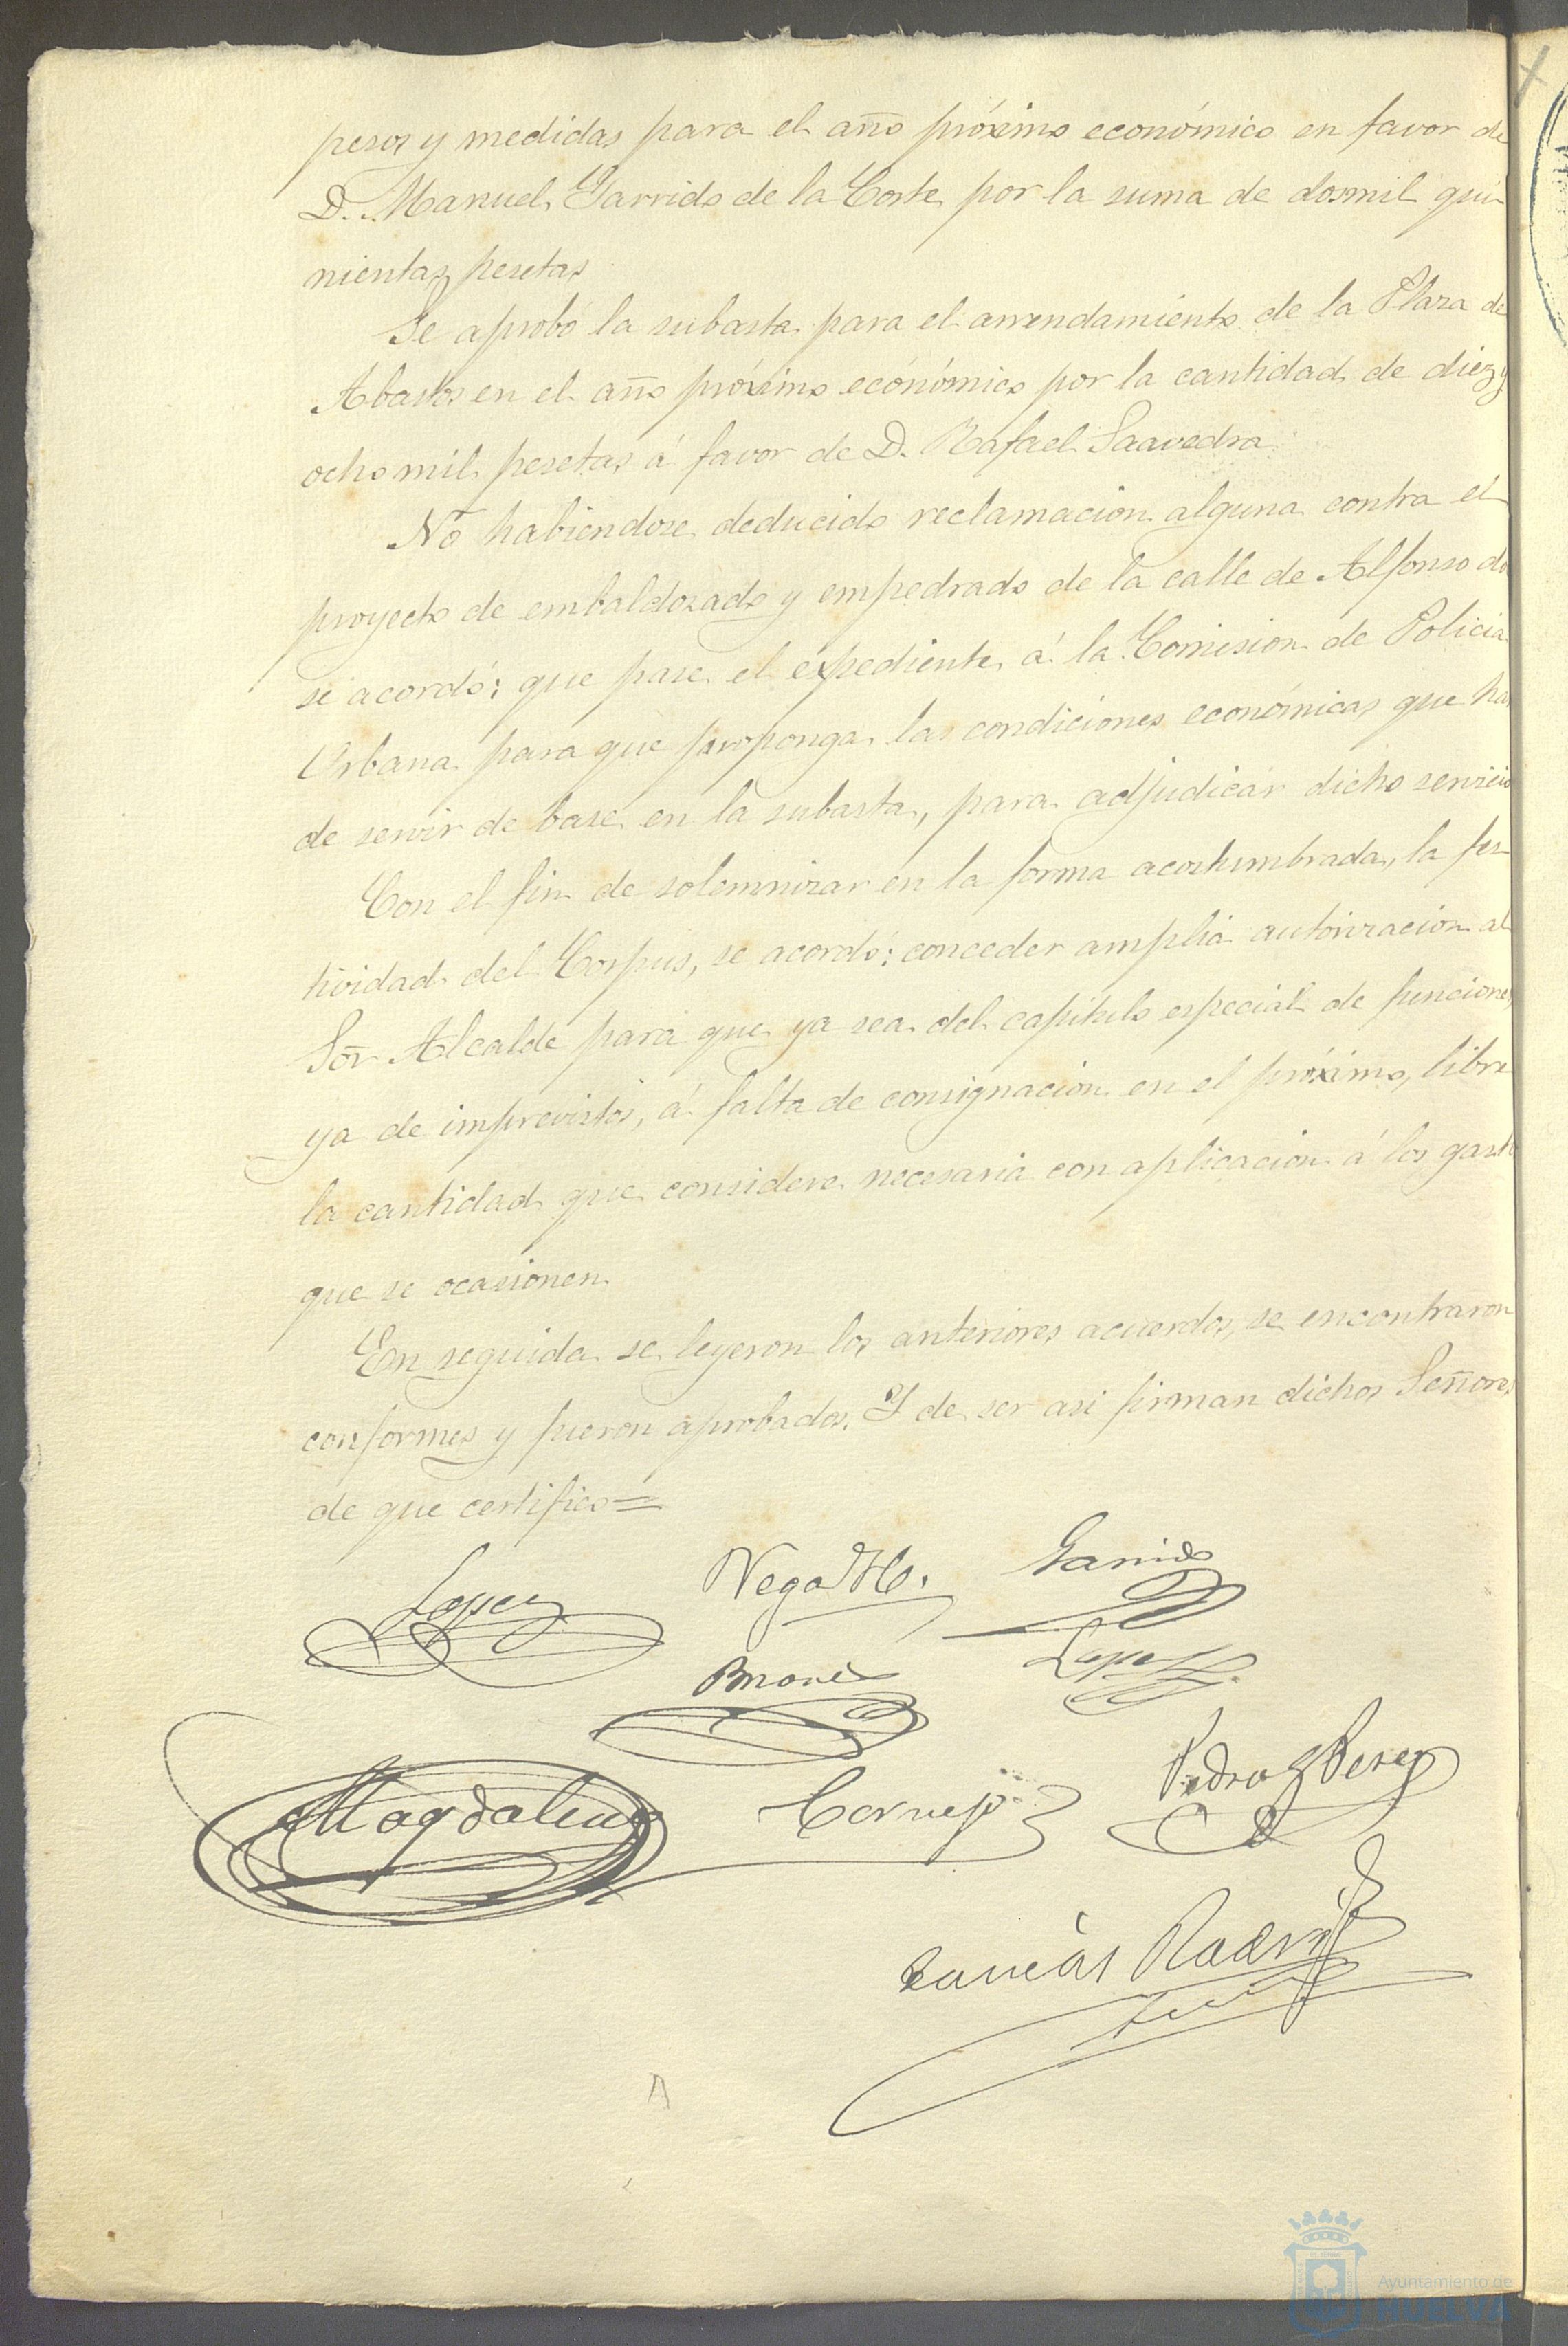 pesos y medidas para el año próximo económico en favor de
D. Manuel Garrido de la Corte por la suma de dosmil qui-
nientas pesetas
Se aprobó la subasta para el arrendamiento de la Plaza de
Abastos en el año próximo económico por la cantidad de diez y
ocho mil pesetas á favor de D. Rafael Saavedra.
No habiendose deducido reclamacion alguna contra el
proyecto de embaldosado y empedrado de la calle de Alfonso do
se acordó: que pase el expediente á la Comision de Policia
Urbana para que proponga las condiciones económicas que han
de servir de base en la subasta, para adjudicar dicho servicio
Con el fin de solemnizar en la forma acostumbrada, la fes-
tividad del Corpus, se acordó: conceder amplia autorizacion al
Sor Alcalde para que ya sea del capitulo especial de funciones,
ya de imprevistos, á falta de consignacion en el próximo, libre
la cantidad que considere necesaria con aplicacion á los gasto
que se ocasionen.
En seguida se leyeron los anteriores acuerdos, se encontraron
conformes y fueron aprobados. Y de ser asi firman dichos Señores
de que certifico=
Lopez Vega Garrido
Lopez
Magdalena Cornejo Pedro G Perez
Ayuntamiento de
HUELVA